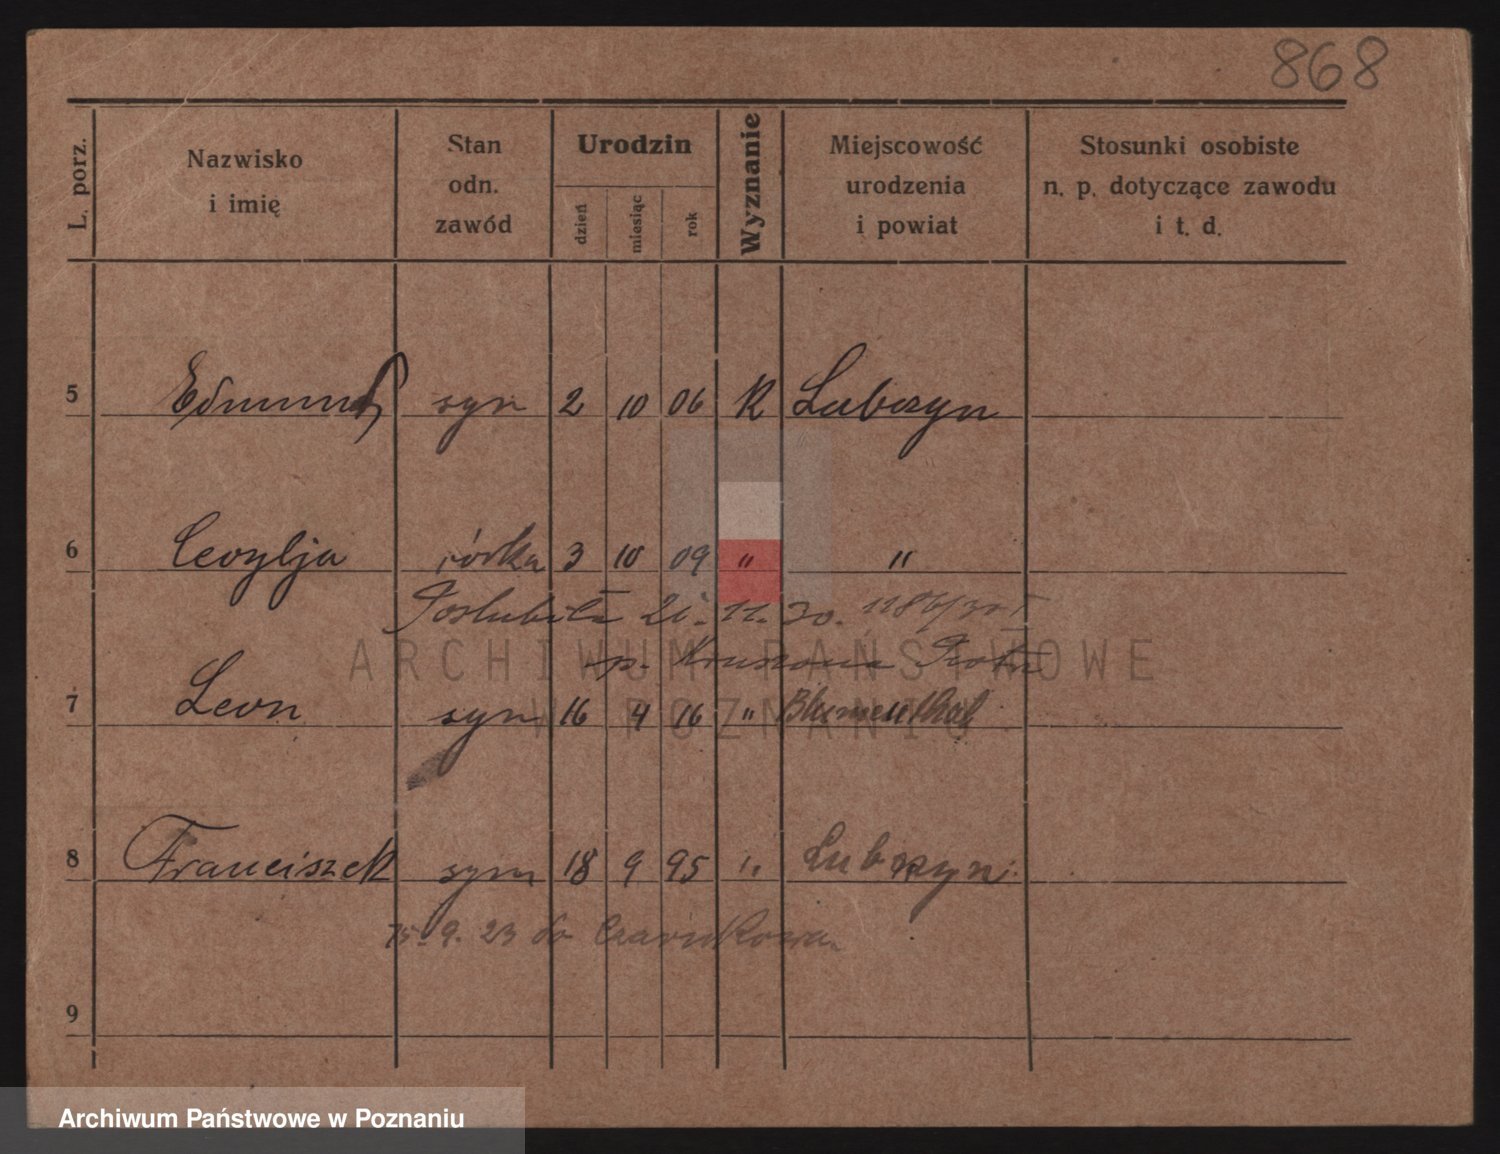 868
L. porz.
Nazwisko i imię
Stan odn. zawód
Urodzin
dzień
miesiąc
rok
Wyznanie
Miejscowość urodzenia i powiat
Stosunki osobiste n. p. dotyczące zawodu i t. d.
5 Edmund syn 2 10 06 K Lubczyn
6 Cecylja córka 3 10 09 " "
Poślubiła 11. 30.
p. Piotra
7 Leon syn 16 4 16 " Blumenthal
8 Franciszek syn 18 9 95 "
15. 9. 23 do Czarnkowa
9
ARCHIWUM PAŃSTWOWE
W POZNANIU
Archiwum Państwowe w Poznaniu